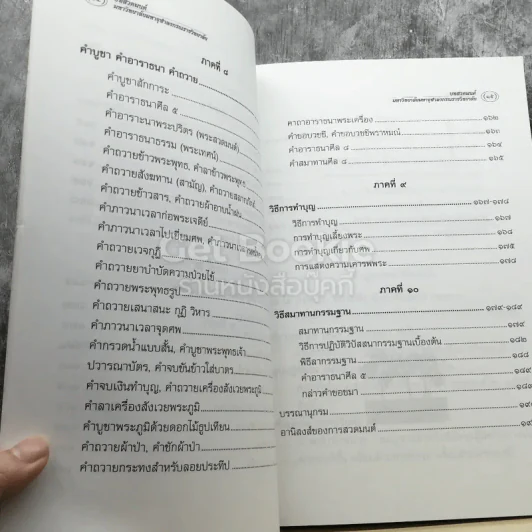 บทสวดมนต์
มหาวิทยาลัยมหาจุฬาลงกรณราชวิทยาลัย
ภาคที่ ๘
คำบูชา คำอาราธนา คำถวาย
คำบูชาสักการะ
คำอาราธนาศีล ๕
คำอาราะนาพระปริตร (พระสวดมนต์)
คำอาราธนาธรรม (พระเทศน์)
คำถวายข้าวพระพุทธ, คำลาข้าวพระพุทธ
คำถวายสังฆทาน (สามัญ), คำถวายสลากภัต
คำถวายข้าวสาร, คำถวายผ้าอาบน้ำฝน
คำภาวนาเวลาก่อพระเจดีย์
คำภาวนาเวลาไปเยี่ยมศพ,
คำถวายเวจกุฎี
คำถวายยาบำบัดความป่วยไข้
คำถวายพระพุทธรูป
คำถวายเสนาสนะ กุฏิ วิหาร
คำภาวนาเวลาจุดศพ
คำกรวดน้ำแบบสั้น, คำบูชาพระพุทธเจ้า
ปวารณาบัตร, คำจบขันข้าวใส่บาตร
คำจบเงินทำบุญ, คำถวายเครื่องสังเวยพระภูมิ
คำลาเครื่องสังเวยพระภูมิ
คำบูชาพระภูมิด้วยดอกไม้ธูปเทียน
คำถวายผ้าป่า, คำชักผ้าป่า
คำถวายกระทงสำหรับลอยประทีป
บทสวดมนต์
มหาวิทยาลัยมหาจุฬาลงกรณราชวิทยาลัย (๑๕)
คาถาอาราธนาพระเครื่อง ๑๖๒
คำขอบวชชี, คำขอบวชชีพราหมณ์ ๑๖๓
คำอาราธนาศีล ๘ ๑๖๔
คำสมาทานศีล ๘ ๑๖๕
ภาคที่ ๙
วิธีการทำบุญ ๑๖๗-๑๗๘
วิธีการทำบุญ ๑๖๗
การทำบุญเลี้ยงพระ ๑๖๘
การทำบุญเกี่ยวกับศพ ๑๗๕
การแสดงความเคารพพระ ๑๗๘
ภาคที่ ๑๐
วิธีสมาทานกรรมฐาน ๑๗๙-๑๘๙
สมาทานกรรมฐาน ๑๗๙
วิธีการปฏิบัติวิปัสสนากรรมฐานเบื้องต้น ๑๘๒
พิธีลากรรมฐาน ๑๘๘
คำอาราธนาศีล ๕ ๑๘๙
กล่าวคำขอขมา ๑๘๙
บรรณานุกรม
อานิสงส์ของการสวดมนต์
Get Bookie
ร้านหนังสือบุคกี้